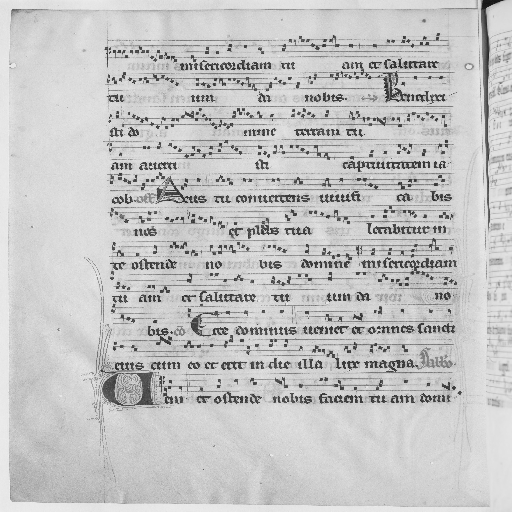 misericordiam tu am et salutare
tu um da nobis. Benedixi
sti do mine terram tu
am averti sti captivitatem ia
cob. off. Deus tu convertens vivifi ca bis
nos et plebs tua letabitur in
te ostende no bis domine misericordiam
tu am et salutare tu um da no
bis. co Ecce dominus veniet et omnes sancti
eius cum eo et erit in die illa lux magna.
Veni et ostende nobis faciem tu am domi